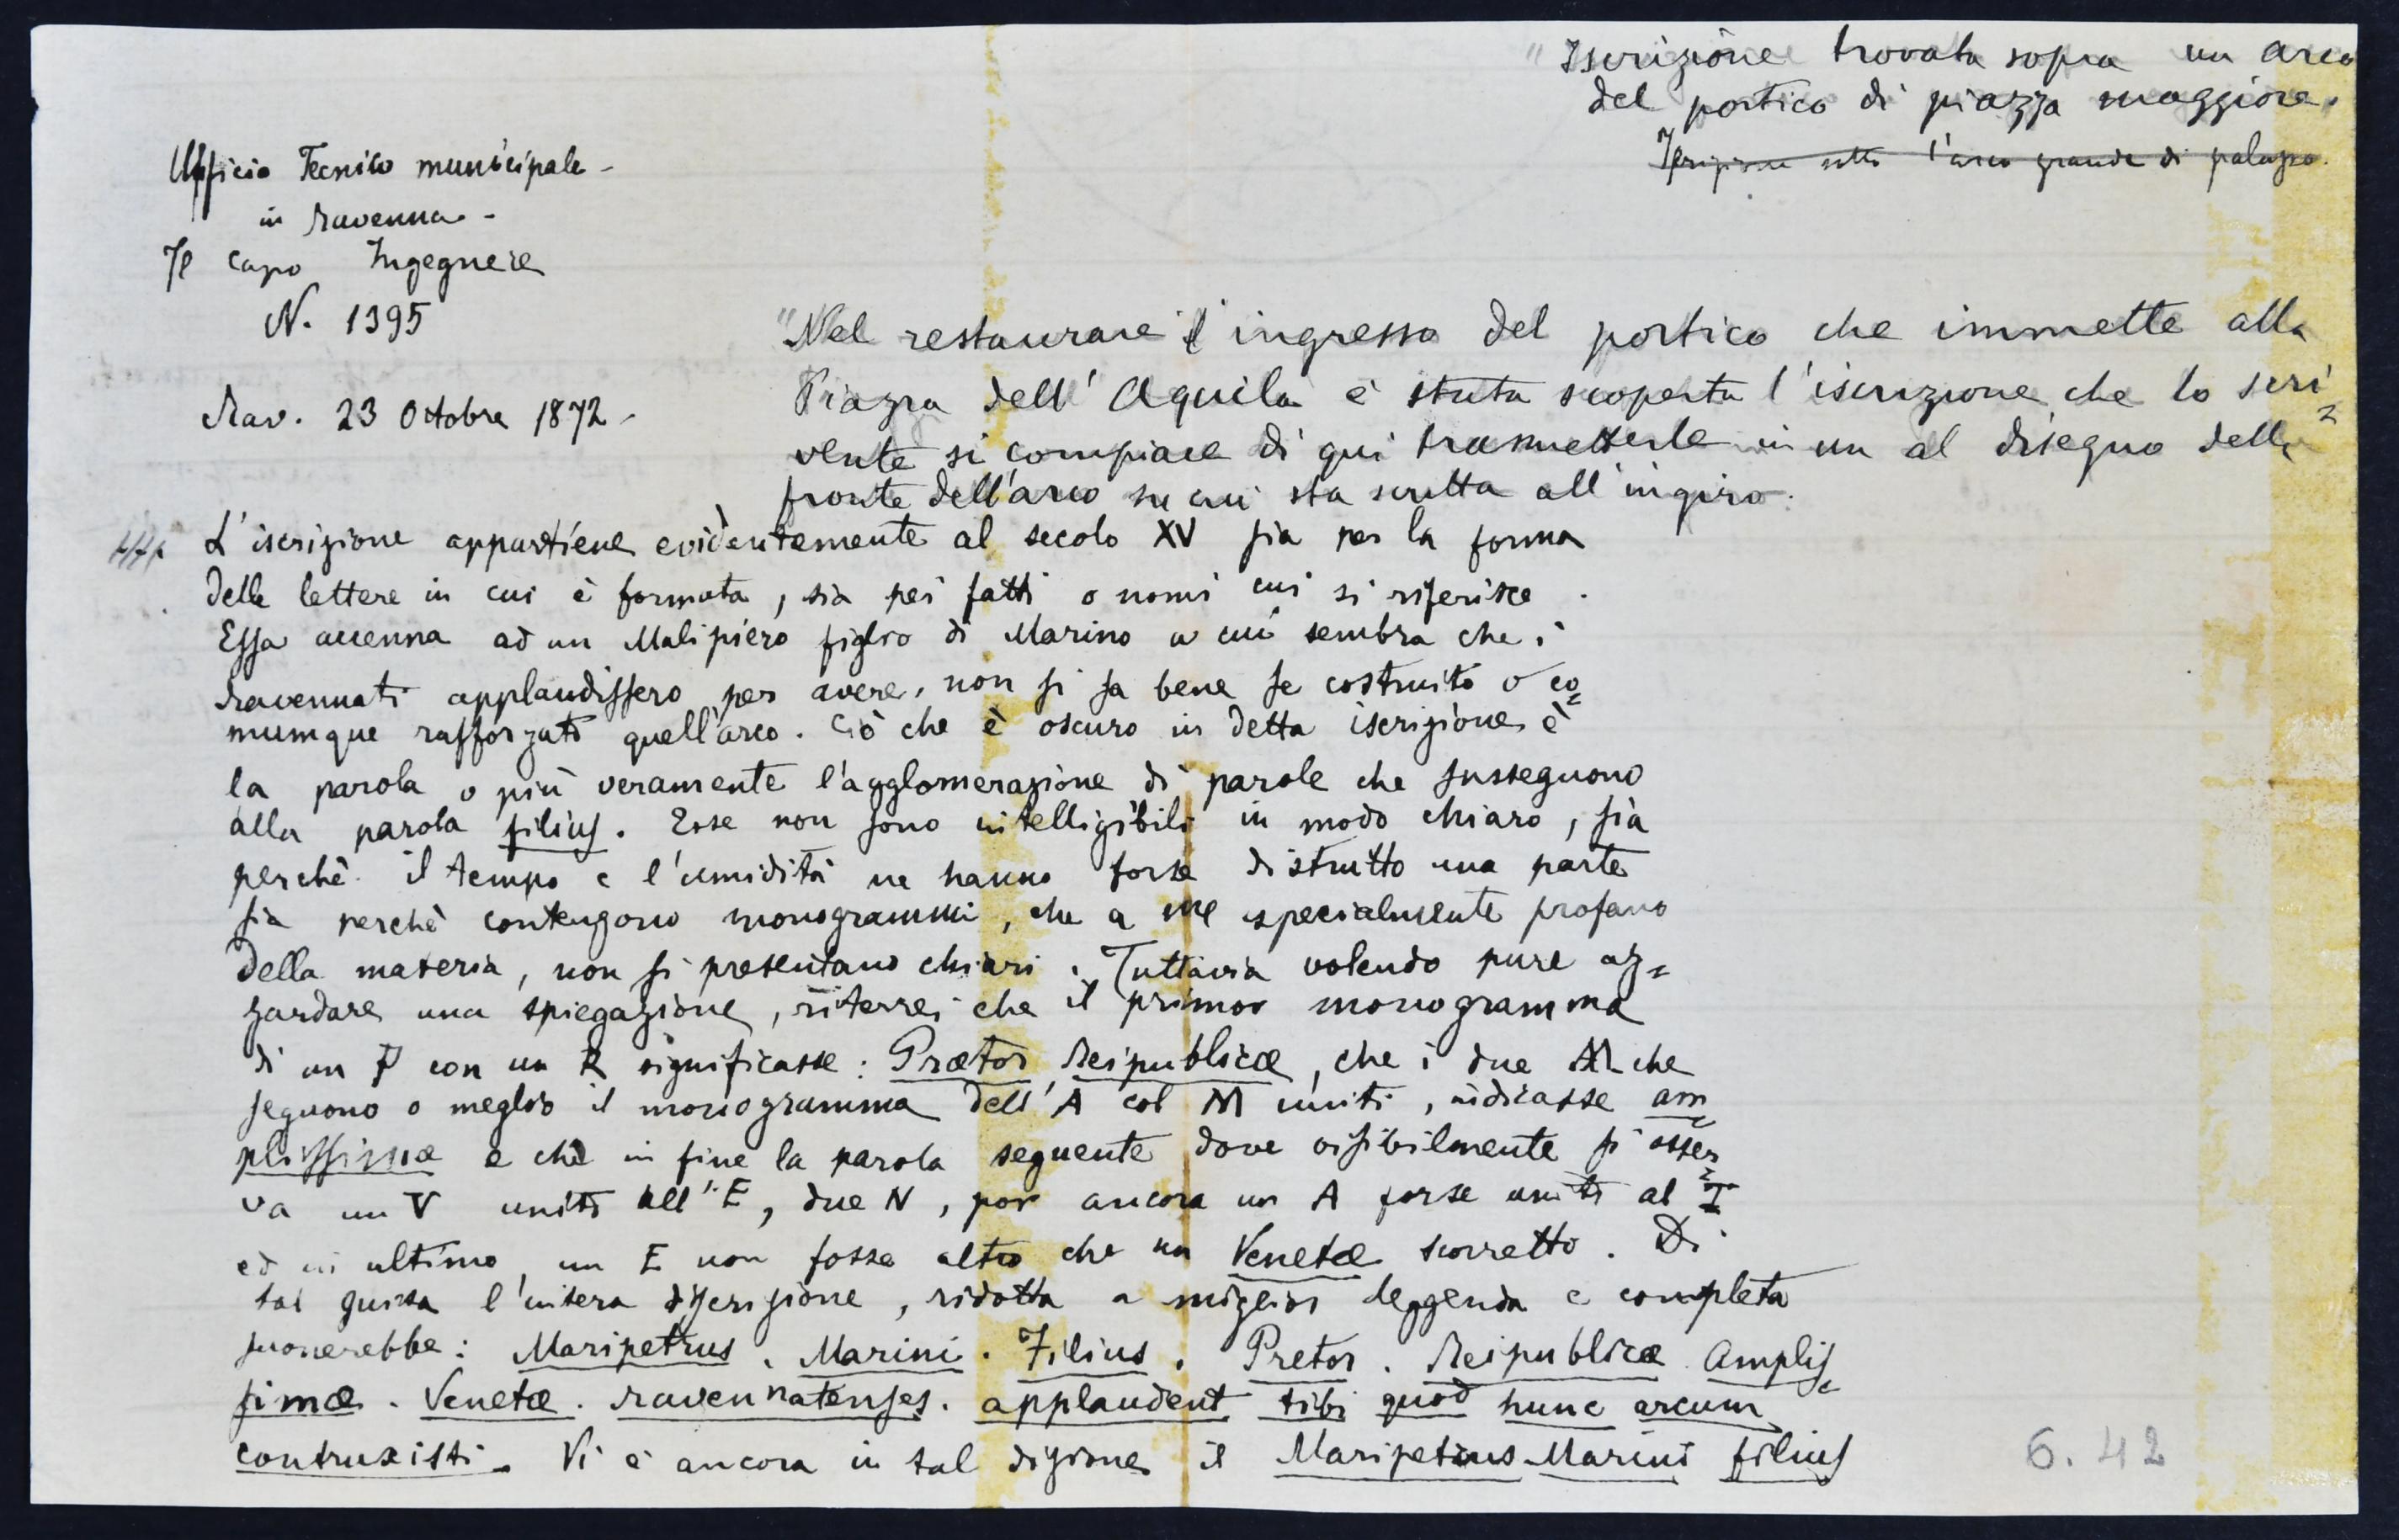 "Iscrizione trovata sopra un arco
del portico di piazza maggiore.
Iscrizione sotto l'arco grande di palazzo.
Ufficio Tecnico municipale -
in Ravenna -
Il capo Ingegnere
N. 1395
Rav. 23 Ottobre 1872 -
"Nel restaurare l'ingresso del portico che immette alla
Piazza dell'Aquila è stata scoperta l'iscrizione che lo scri=
vente si compiace di qui trasmetterle in un al disegno della
fronte dell'arco su cui sta scritta all'ingiro.
L'iscrizione appartiene evidentemente al secolo XV sia per la forma
delle lettere in cui è formata, sia pei fatti o nomi cui si riferisce.
Essa accenna ad un Malipiero figlio di Marino a cui sembra che i
ravennati applaudissero per avere, non si sa bene se costruito o co=
munque rafforzato quell'arco. Ciò che è oscuro in detta iscrizione è
la parola o più veramente l'agglomerazione di parole che susseguono
alla parola filius. Esse non sono intelligibili in modo chiaro, sia
perchè il tempo e l'umidità ne hanno forse distrutto una parte
sia perchè contengono monogrammi, che a me specialmente profano
della materia, non si presentano chiari. Tuttavia volendo pure az=
zardare una spiegazione, riterrei che il primo monogramma
di un P con un R significasse: Prætor Reipublicæ, che i due M che
seguono o meglio il monogramma dell'A col M uniti, indicasse am=
plissimæ e che in fine la parola seguente dove visibilmente si osser=
va un V unito all'E, due N, poi ancora un A forse unito al T
ed in ultimo un E non fosse altro che un Venetæ scorretto. Di
tal guisa l'intera iscrizione, ridotta a miglior leggenda e completa
suonerebbe: Maripetrus. Marini. Filius. Pretor. Reipublicæ Amplis=
simæ. Venetæ. ravennatenses. applaudent tibi quod hunc arcum
contruxisti. Vi è ancora in tal dizione il Maripetrus Marini filius
6.42